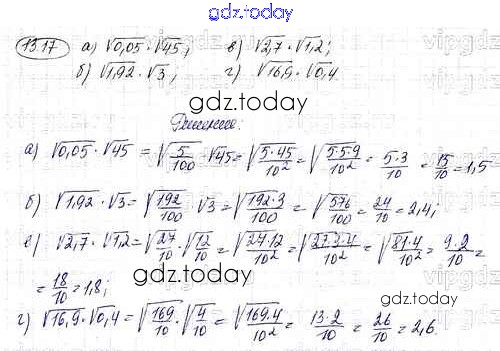 gdz.today
13.17 а) √0,05 · √45; в) √2,7 · √1,2;
gdz.today
б) √1,92 · √3; г) √16,9 · √0,4.
gdz.today
Решение:
а) √0,05 · √45 = √(5/100) · √45 = √(5·45/10²) = √(5·5·9/10²) = 5·3/10 = 15/10 = 1,5
б) √1,92 · √3 = √(192/100) · √3 = √(192·3/100) = √(576/100) = 24/10 = 2,4;
в) √2,7 · √1,2 = √(27/10) · √(12/10) = √(27·12/10²) = √(27·3·4/10²) = √(81·4/10²) = 9·2/10 =
= 18/10 = 1,8;
gdz.today
г) √16,9 · √0,4 = √(169/10) · √(4/10) = √(169·4/10²) = 13·2/10 = 26/10 = 2,6.
gdz.today